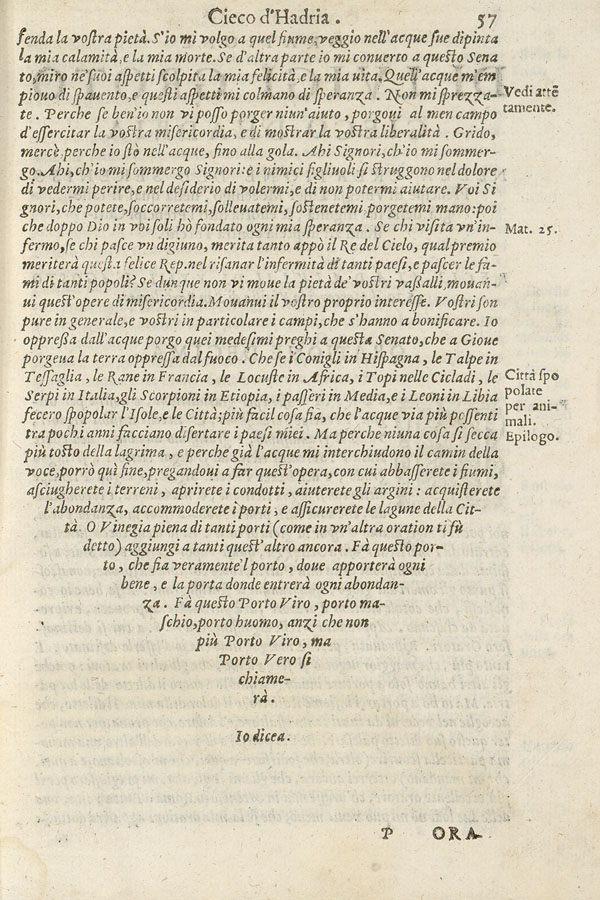 Cieco d'Hadria. 57
fenda la vostra pietà. S'io mi volgo a quel fiume, veggio nell'acque sue dipinta
la mia calamità, e la mia morte. Se d'altra parte io mi conuerto a questo Sena
to, miro ne'suoi aspetti scolpita la mia felicità, e la mia vita. Quell'acque m'em
piouo di spauento, e questi aspetti mi colmano di speranza. Non mi sprezza-
te. Perche se ben'io non vi posso porger niun'aiuto, porgoui al men campo
d'essercitar la vostra misericordia, e di mostrar la vostra liberalità. Grido,
mercè, perche io stò nell'acque, fino alla gola. Ahi Signori, ch'io mi sommer-
go. Ahi, ch'io mi sommergo Signori: e i nimici figliuoli si struggono nel dolore
di vedermi perire, e nel desiderio di volermi, e di non potermi aiutare. Voi Si
gnori, che potete, soccorretemi, solleuatemi, sostenetemi porgetemi mano: poi
che doppo Dio in voi soli hò fondato ogni mia speranza. Se chi visita vn'in-
fermo, se chi pasce vn digiuno, merita tanto appò il Re del Cielo, qual premio
meriterà questa felice Rep. nel risanar l'infermità di tanti paesi, e pascer le fa-
mi di tanti popoli? Se dunque non vi moue la pietà de' vostri vassalli, mouan-
ui quest'opere di misericordia. Mouanui il vostro proprio interesse. Vostri son
pure in generale, e vostri in particolare i campi, che s'hanno a bonificare. Io
oppressa dall'acque porgo quei medesimi preghi a questa Senato, che a Gioue
porgeua la terra oppressa dal fuoco. Che se i Conigli in Hispagna, le Talpe in
Tessaglia, le Rane in Francia, le Locuste in Africa, i Topi nelle Cicladi, le
Serpi in Italia, gli Scorpioni in Etiopia, i passeri in Media, e i Leoni in Libia
fecero spopolar l'Isole, e le Città; più facil cosa fia, che l'acque via più possenti
tra pochi anni facciano disertare i paesi miei. Ma perche niuna cosa si secca
più tosto della lagrima, e perche già l'acque mi interchiudono il camin della
voce, porrò quì fine, pregandoui a far quest'opera, con cui abbasserete i fiumi,
asciugherete i terreni, aprirete i condotti, aiuterete gli argini: acquisterete
l'abondanza, accommoderete i porti, e assicurerete le lagune della Cit-
tà. O Vinegia piena di tanti porti (come in vn'altra oration ti fù
detto) aggiungi a tanti quest'altro ancora. Fà questo por-
to, che fia veramente'l porto, doue apporterà ogni
bene, e la porta donde entrerà ogni abondan-
za. Fà questo Porto Viro, porto ma-
schio, porto huomo, anzi che non
più Porto Viro, ma
Porto Vero si
chiame-
rà.
Io dicea.
Vedi attē
tamente.
Mat. 25.
Città spo
polate
per ani-
mali.
Epilogo.
P ORA-